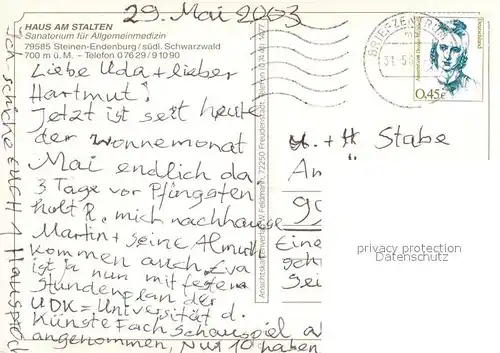 29. Mai 2003
HAUS AM STALTEN
Sanatorium für Allgemeinmedizin
79585 Steinen-Endenburg / südl. Schwarzwald
700 m ü. M. – Telefon 0 76 29 / 9 10 90
Liebe Uda + lieber
Hartmut!
Jetzt ist seit heute
der Wonnemonat
Mai endlich da
3 Tage vor Pfingsten
holt R. mich nachhause
Martin + seine Almuth
kommen auch Eva
ist ja nun mit festem
Stundenplan der
UDK = Universität d.
Künste Fach Schauspiel
angenommen, Nur 10 haben
ich schicke EUCH 1
Ansichtskartenverlag W. Feldmann, 72250 Freudenstadt, Telefon
BRIEFZENTRUM
31.5
Deutschland
0,45€
U. + H Stabe
An
Eine
privacy protection
DELCAMPE